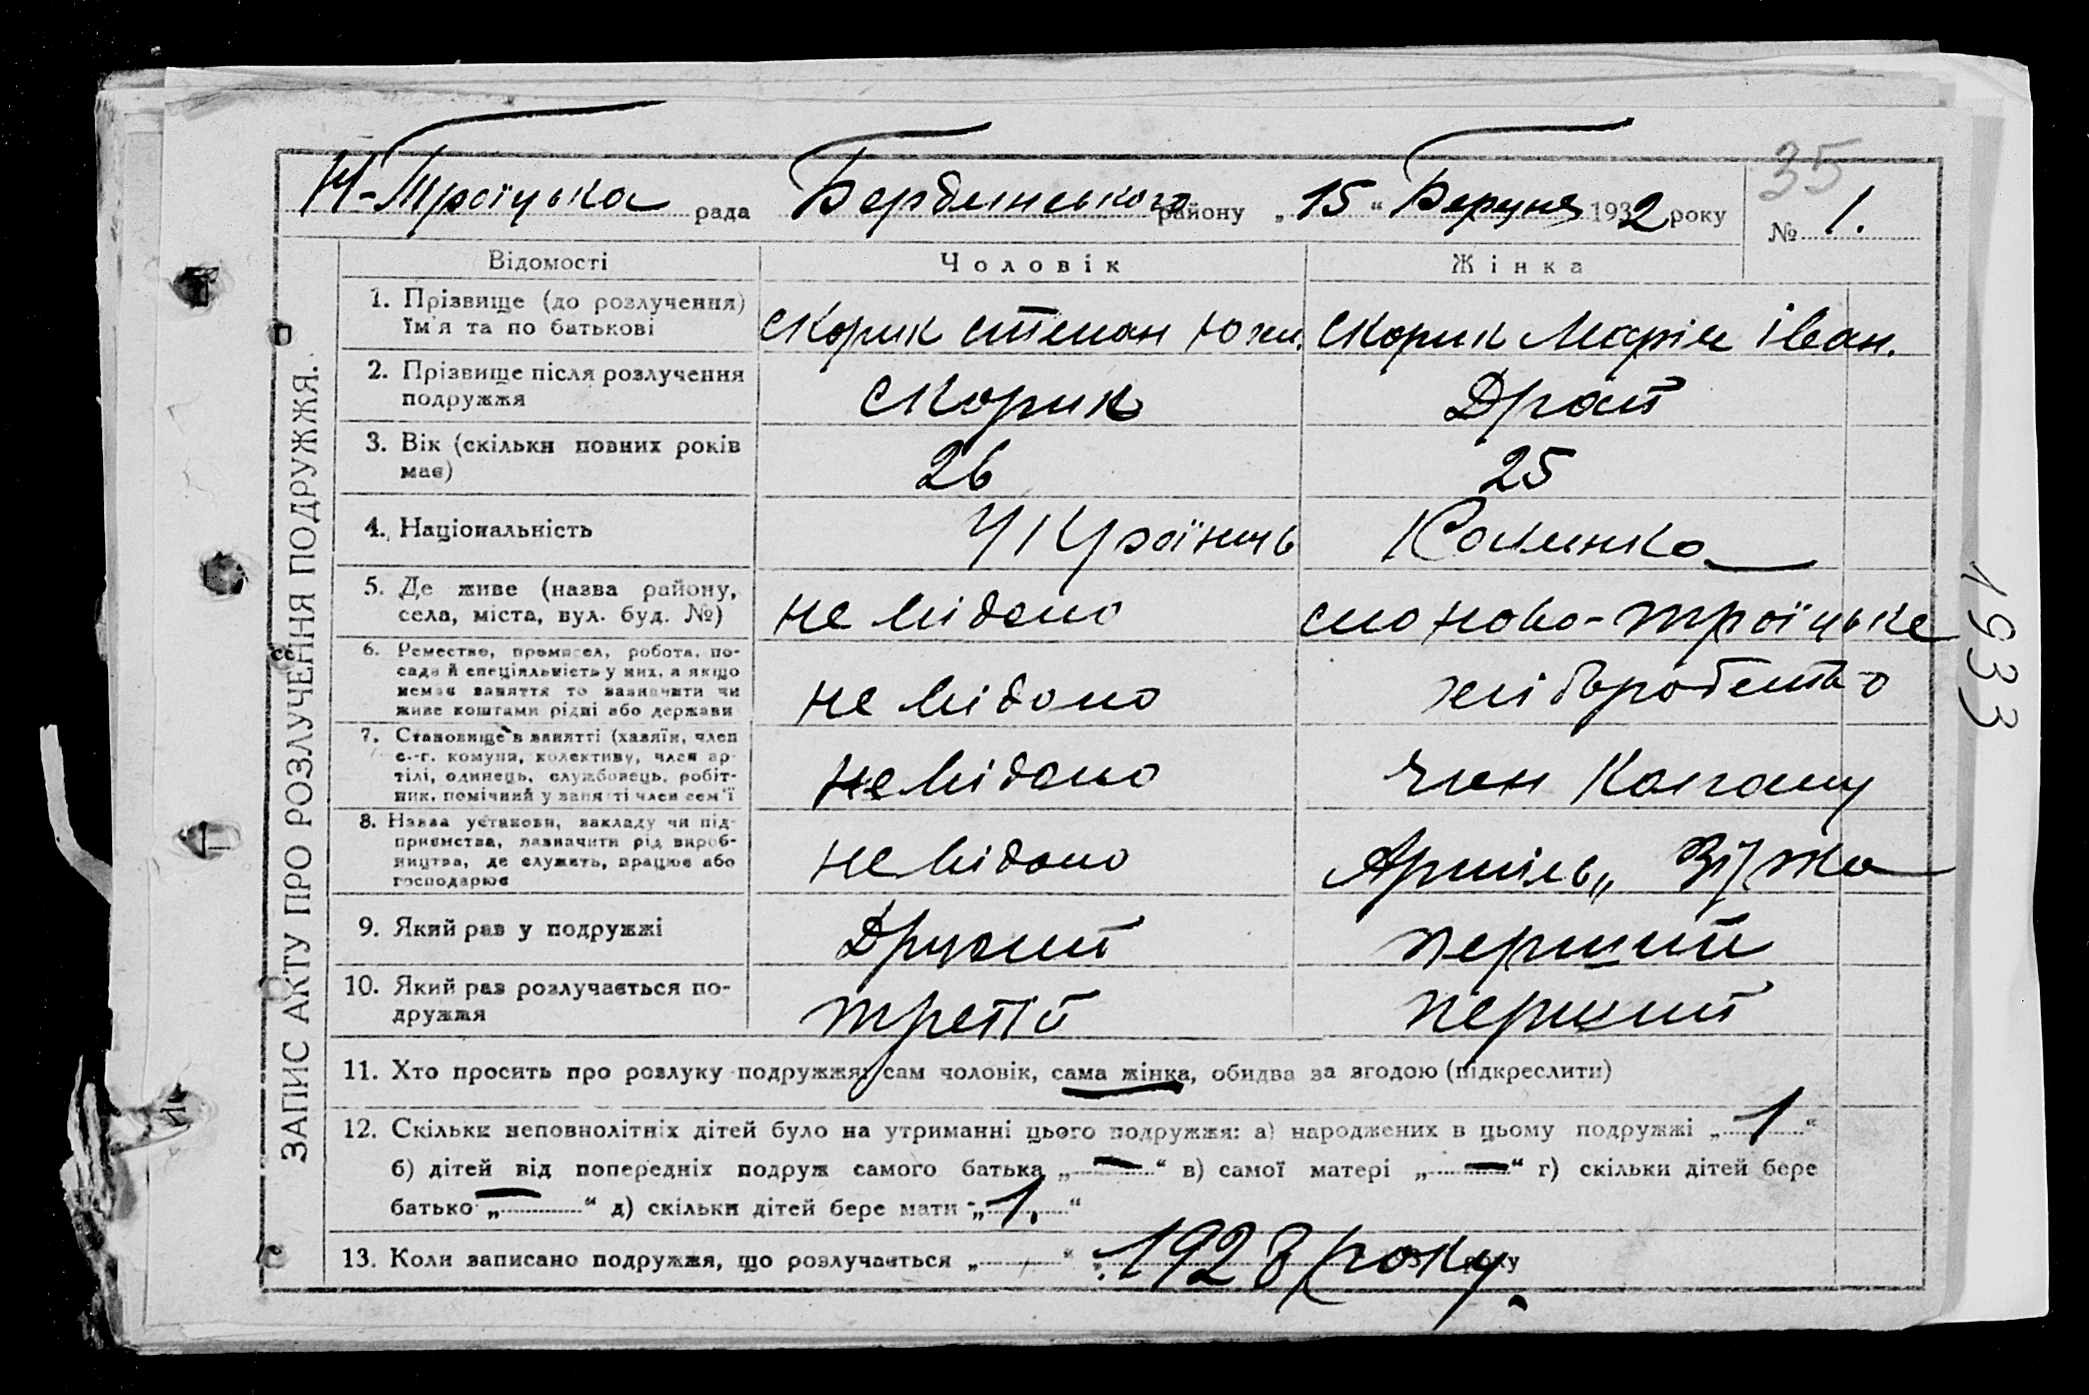 35
Н-Троїцька рада Бердянського району „15“ Березня 1932 року № 1.
ЗАПИС АКТУ ПРО РОЗЛУЧЕННЯ ПОДРУЖЖЯ.
Відомості Чоловік Жінка
1. Прізвище (до розлучення)
ім'я та по батькові
Скорик Степан Скорик Марія Іван.
2. Прізвище після розлучення
подружжя
Скорик
3. Вік (скільки повних років
має)
26 25
4. Національність
Україниць
5. Де живе (назва району,
села, міста, вул. буд. №)
не відомо село Ново-Троїцьке
6. Ремество, промисел, робота, по-
сада й спеціяльність у них, а якщо
немає заняття то зазначити чи
живе коштами рідні або держави
не відомо хліборобство
7. Становище в занятті (хазяїн, член
с.-г. комуни, колективу, член ар-
тілі, одинець, службовець, робіт-
ник, помічний у занятті член сем'ї
не відомо член Колгоспу
8. Назва установи, закладу чи під-
приємства, зазначити рід вироб-
ництва, де служить, працює або
господарює
не відомо Артіль „
9. Який раз у подружжі
Другий перший
10. Який раз розлучається по-
дружжя
третій перший
11. Хто просить про розлуку подружжя: сам чоловік, сама жінка, обидва за згодою (підкреслити)
12. Скільки неповнолітніх дітей було на утриманні цього подружжя: а) народжених в цьому подружжі „1“
б) дітей від попередніх подруж самого батька „—“ в) самої матері „—“ г) скільки дітей бере
батько „—“ д) скільки дітей бере мати „1.“
13. Коли записано подружжя, що розлучається „ “ 1928 року.
1933